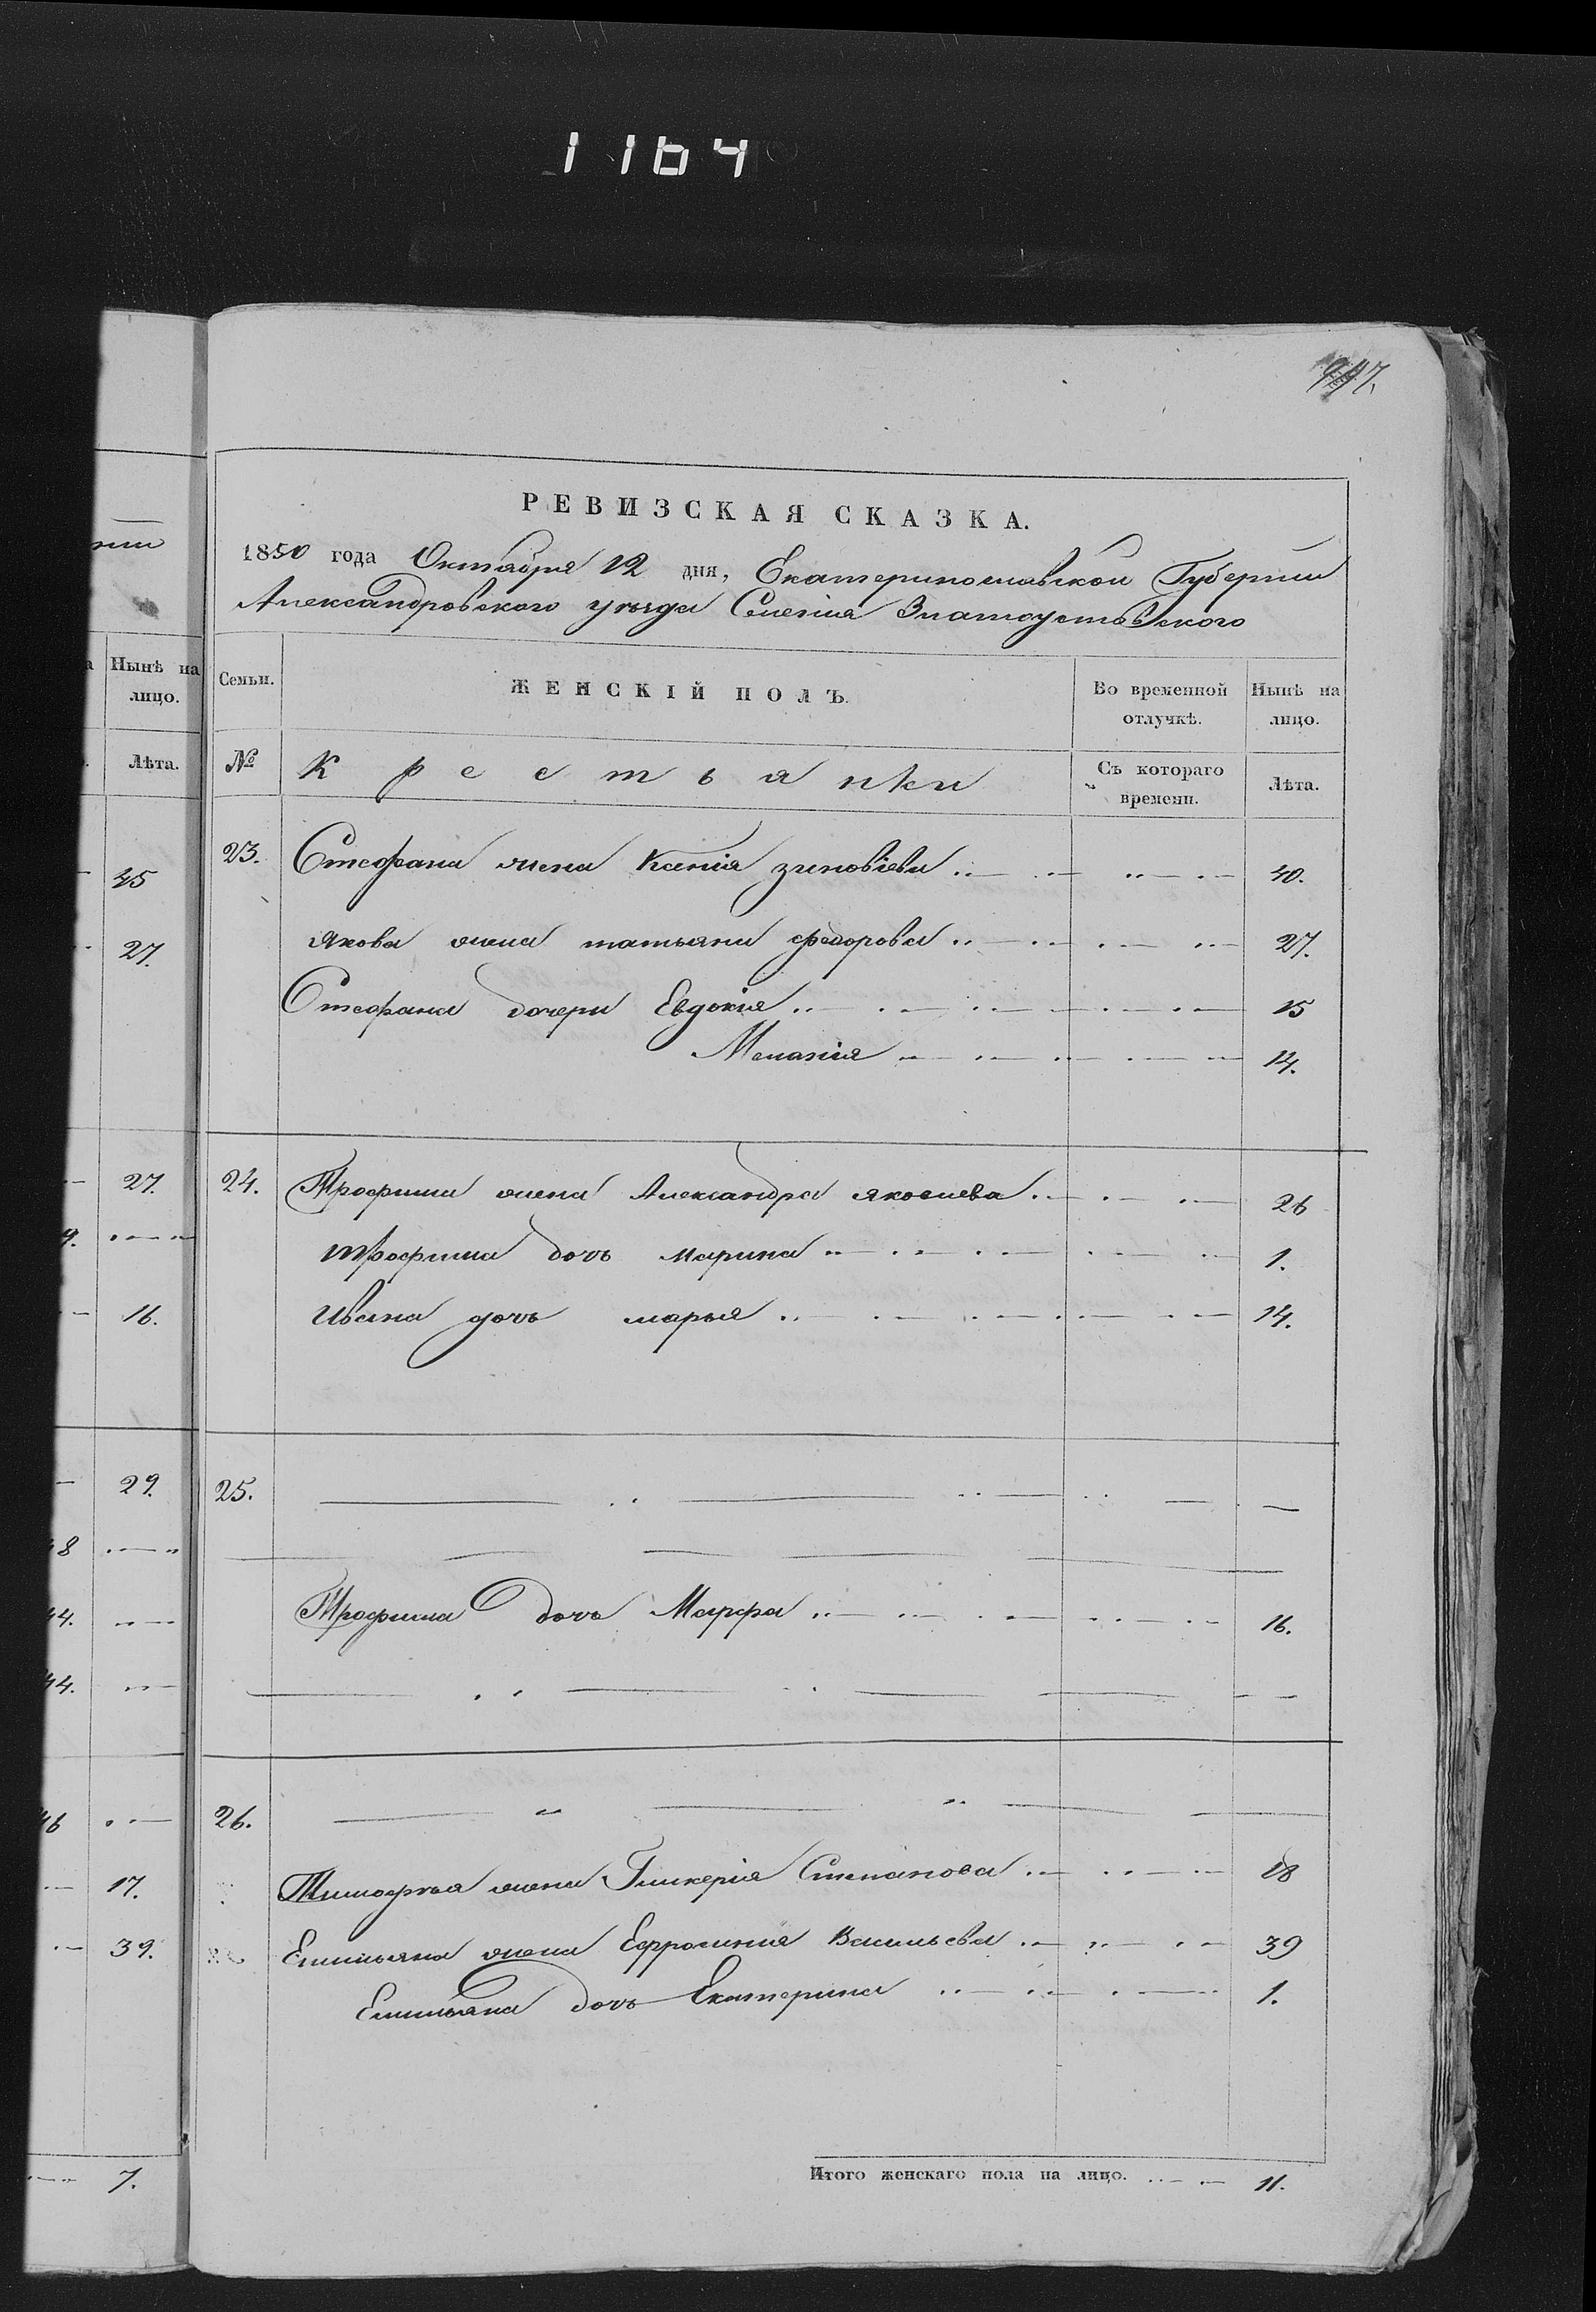 1164
РЕВИЗСКАЯ СКАЗКА.
1850 года Октября 12 дня, Екатеринославской Губернии
Александровского уѣзда Селенія Златоустовского
Нынѣ на лицо.
Лѣта.
45
27.
27.
16.
29.
17.
39.
7.
Семьи. ЖЕНСКІЙ ПОЛЪ. Во временной отлучкѣ. Нынѣ на лицо.
№ Крестьянки Съ котораго времени. Лѣта.
23. Стефана жена Ксенія зиновіева 40.
якова жена татьяна федорова 27.
Стефана дочери Евдокія 15
Меланія 14.
24. Трофима жена Александра яковлева 26
трофима дочь марина 1.
ивана дочь марья 14.
25.
Трофима дочь Марфа 16.
26.
Тимофея жена Гликерія Степанова 18
Емильяна жена Ефросинія Васильева 39
Емильяна дочь Екатерина 1.
Итого женскаго пола на лицо. 11.